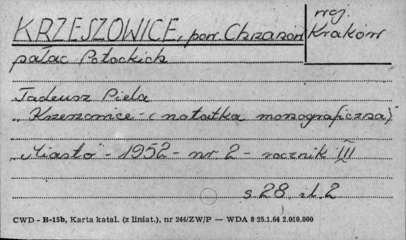 KRZESZOWICE, pow. Chrzanów
woj. Kraków
pałac Potockich
Tadeusz Piela
„Krzeszowice - (notatka monograficzna)"
„Miasto" - 1952 - nr. 2 - rocznik III
s. 28, il. 2
CWD - B-15b, Karta katal. (z liniat.), nr 244/ZW/P — WDA 8 25.1.64 2.010.000